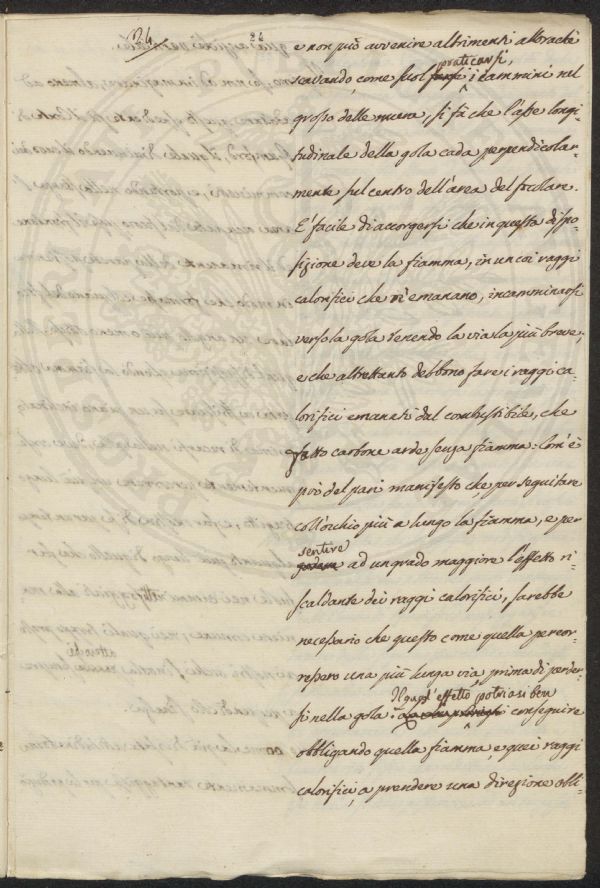 24 24
e non può avvenire altrimenti allorachè
praticarsi,
scavando, come suol farsi i cammini nel
grosso delle mura, si fà che l'asse longi-
tudinale della gola cada perpendicolar-
mente sul centro dell'area del focolare.
E' facile di accorgersi che in questa dispo-
sizione deve la fiamma, in un coi raggi
calorifici che n'emanano, incamminarsi
verso la gola tenendo la via la più breve;
e che altrettanto debbono fare i raggi ca-
lorifici emanati dal combustibile, che
fatto carbone arde senza fiamma. Com'è
però del pari manifesto che, per seguitare
coll'occhio più a lungo la fiamma, e per
sentire
godere ad un grado maggiore l'effetto ri-
scaldante dei raggi calorifici, sarebbe
necessario che questo come quella percor-
ressero una più lunga via, prima di perder-
Il qual' effetto, potriasi ben
si nella gola: conseguire
obbligando quella fiamma, e quei raggi
calorifici, a prendere una direzione obli-